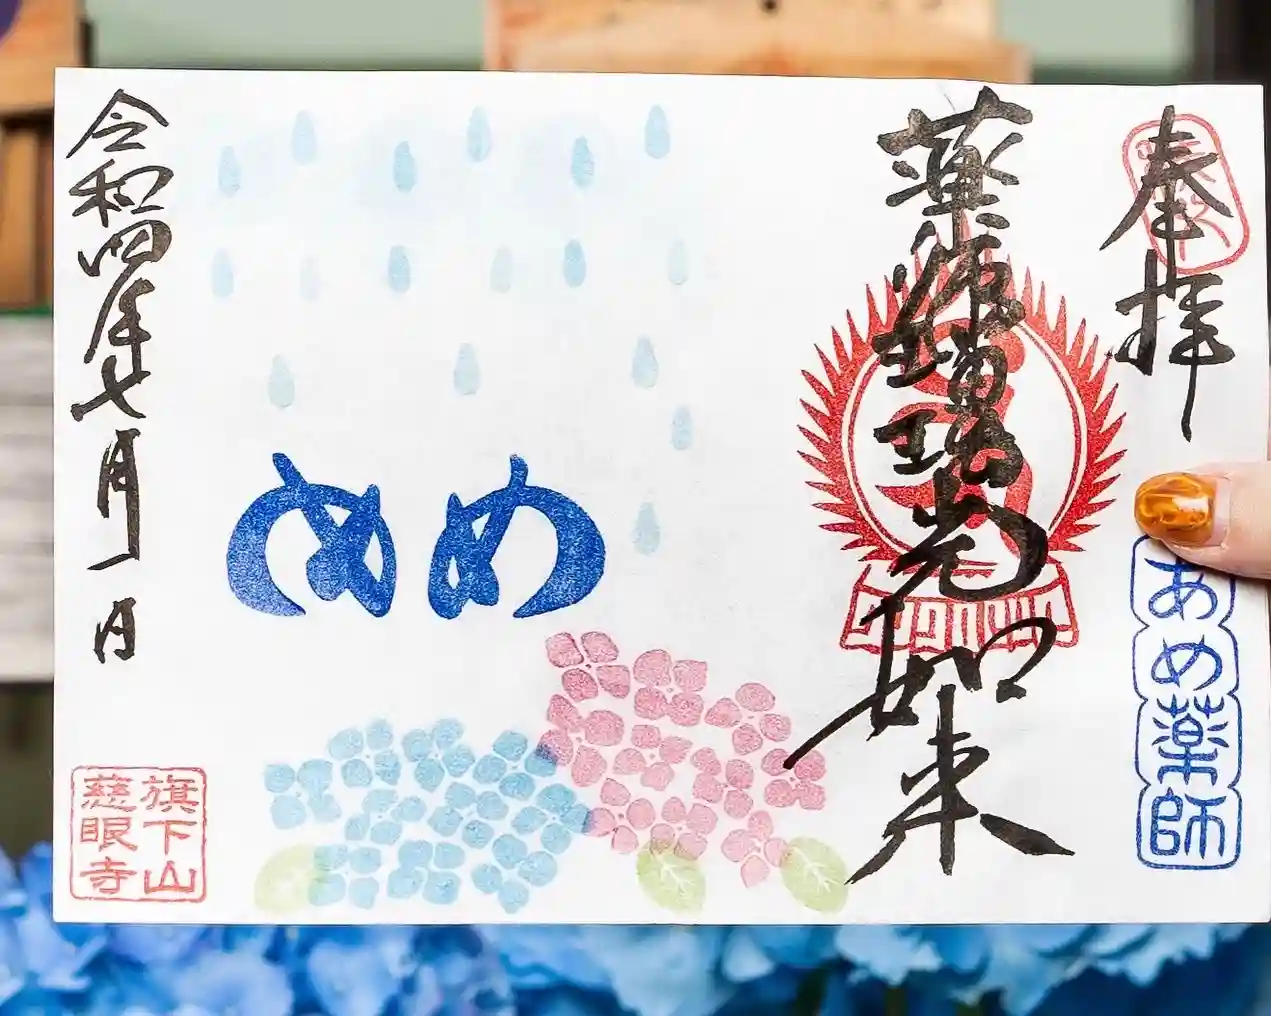 奉拝
あめ薬師
薬師瑠璃光如来
めめ
令和四年七月 日
旗下山
慈眼寺